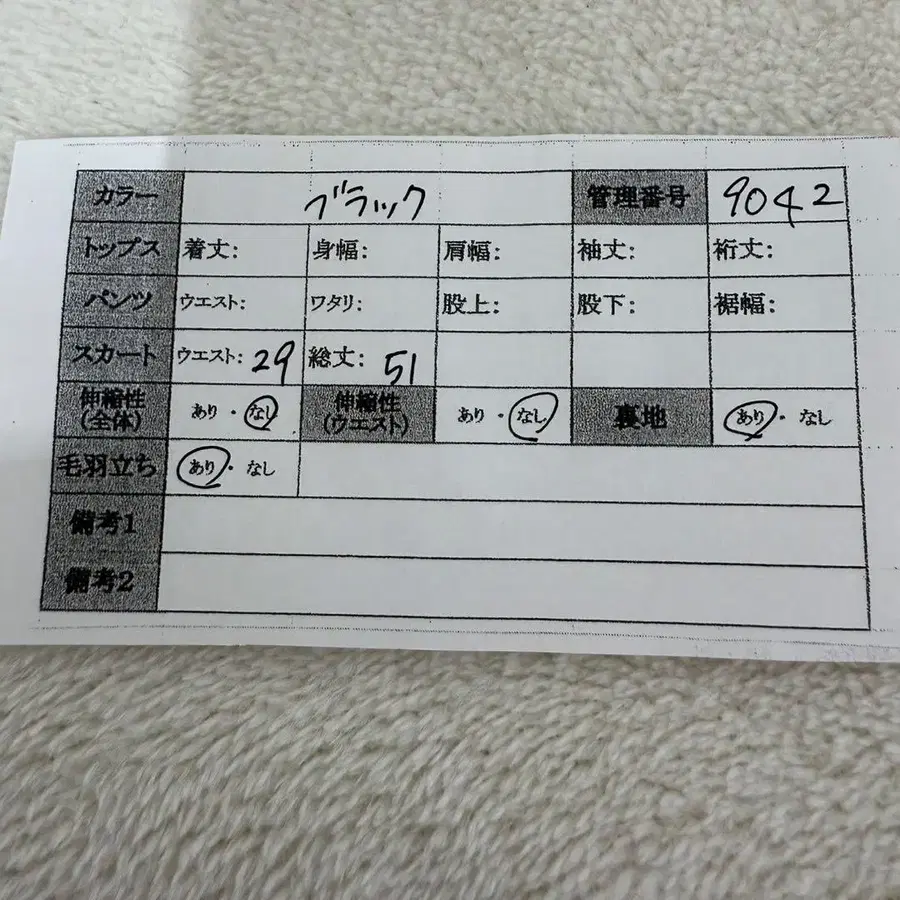 カラー ブラック 管理番号 9042
トップス 着丈: 身幅: 肩幅: 袖丈: 裄丈:
パンツ ウエスト: ワタリ: 股上: 股下: 裾幅:
スカート ウエスト: 29 総丈: 51
伸縮性(全体) あり・なし 伸縮性(ウエスト) あり・なし 裏地 あり・なし
毛羽立ち あり・なし
備考1
備考2